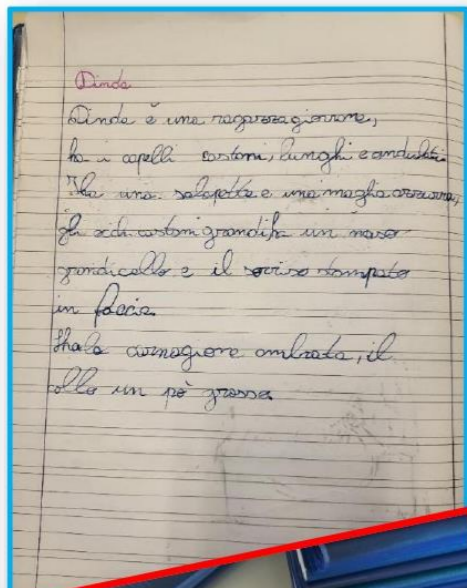 Dinda
Dinda è una ragazza giovane,
ha i capelli castani, lunghi e ondulati.
Ha una salopette e una maglia azzurra,
gli occhi castani grandi ha un naso
grandicello e il sorriso stampato
in faccia
Ha la carnagione ambrata, il
collo un pò grosso